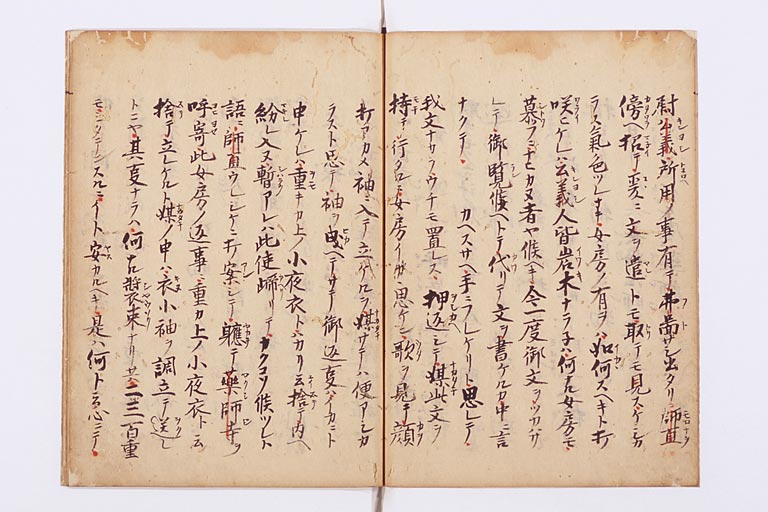 尉公義所用ノ事有テ弗啚サシ出タリ師直
傍ヘ招テ爰ニ文ヲ遣トモ取テモ見ステケシカ
ラス氣色ツレナキ女房ノ有ヲハ如何スヘキト打
咲ヒケレハ公義人皆岩木ナラ子ハ何ナル女房モ
慕フニナヒカヌ者ヤ候ヘキ今一度御文ヲツカハサ
レテ御覧候ヘトテ代リテ文ヲ書ケルカ中ニ言
ナクテ カヘスサヘ手ニフレケリト思ヒテソ
我文ナカラウチモ置レス 押返シテ媒此文ヲ
持テ行タルニ女房イカヽ思ケン歌ヲ見テ顔
打アカメ袖ニ入テ立ケルヲ媒サテハ便アシカ
ラスト思テ袖ヲ曳ヘテサテ御返事ハイカニト
申ケレハ重キカ上ノ小夜衣トハカリ云捨テ内ヘ
紛レ入ヌ暫アレハ此使歸リテカクコソ候ツレト
語ニ師直ウレシケニ打案シテ軈テ薬師寺ヲ
呼寄此女房ノ返事ニ重カ上ノ小夜衣ト云
捨テ立レケルト媒ノ申ハ衣小袖ヲ調立テ送レ
トニヤ其事ナラハ何ナル装束ナリ共二三百重
モシタテンスルニイト安カルヘキ是ハ何ト云心ニテ